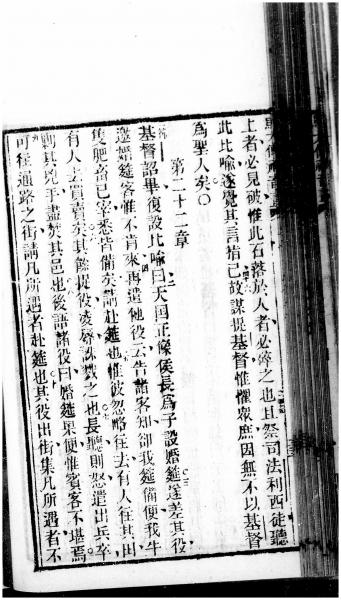 上者必見破惟此石落於人者必碎之也且祭司法利西徒聽
此比喻遂覺其言指己故謀捉基督惟懼衆庶因無不以基督
爲聖人矣○
第二十二章
基督詔畢復設比喻曰天國正像侯長爲子設婚筵遂差其役
邀婚筵客惟不肯來再遣他役去告諸客知卻我筵備便我牛
隻肥畜已宰悉皆備矣請赴筵也惟彼忽略往去有人往其田
有人去買賣矣其餘捉役凌辱誅戮之也長聽則怒遣出兵卒
剿其兇手盡焚其邑也後語諸役曰婚筵果便惟賓客不堪焉
可往通路之街請凡所遇者赴筵也其役出街集凡所遇者不